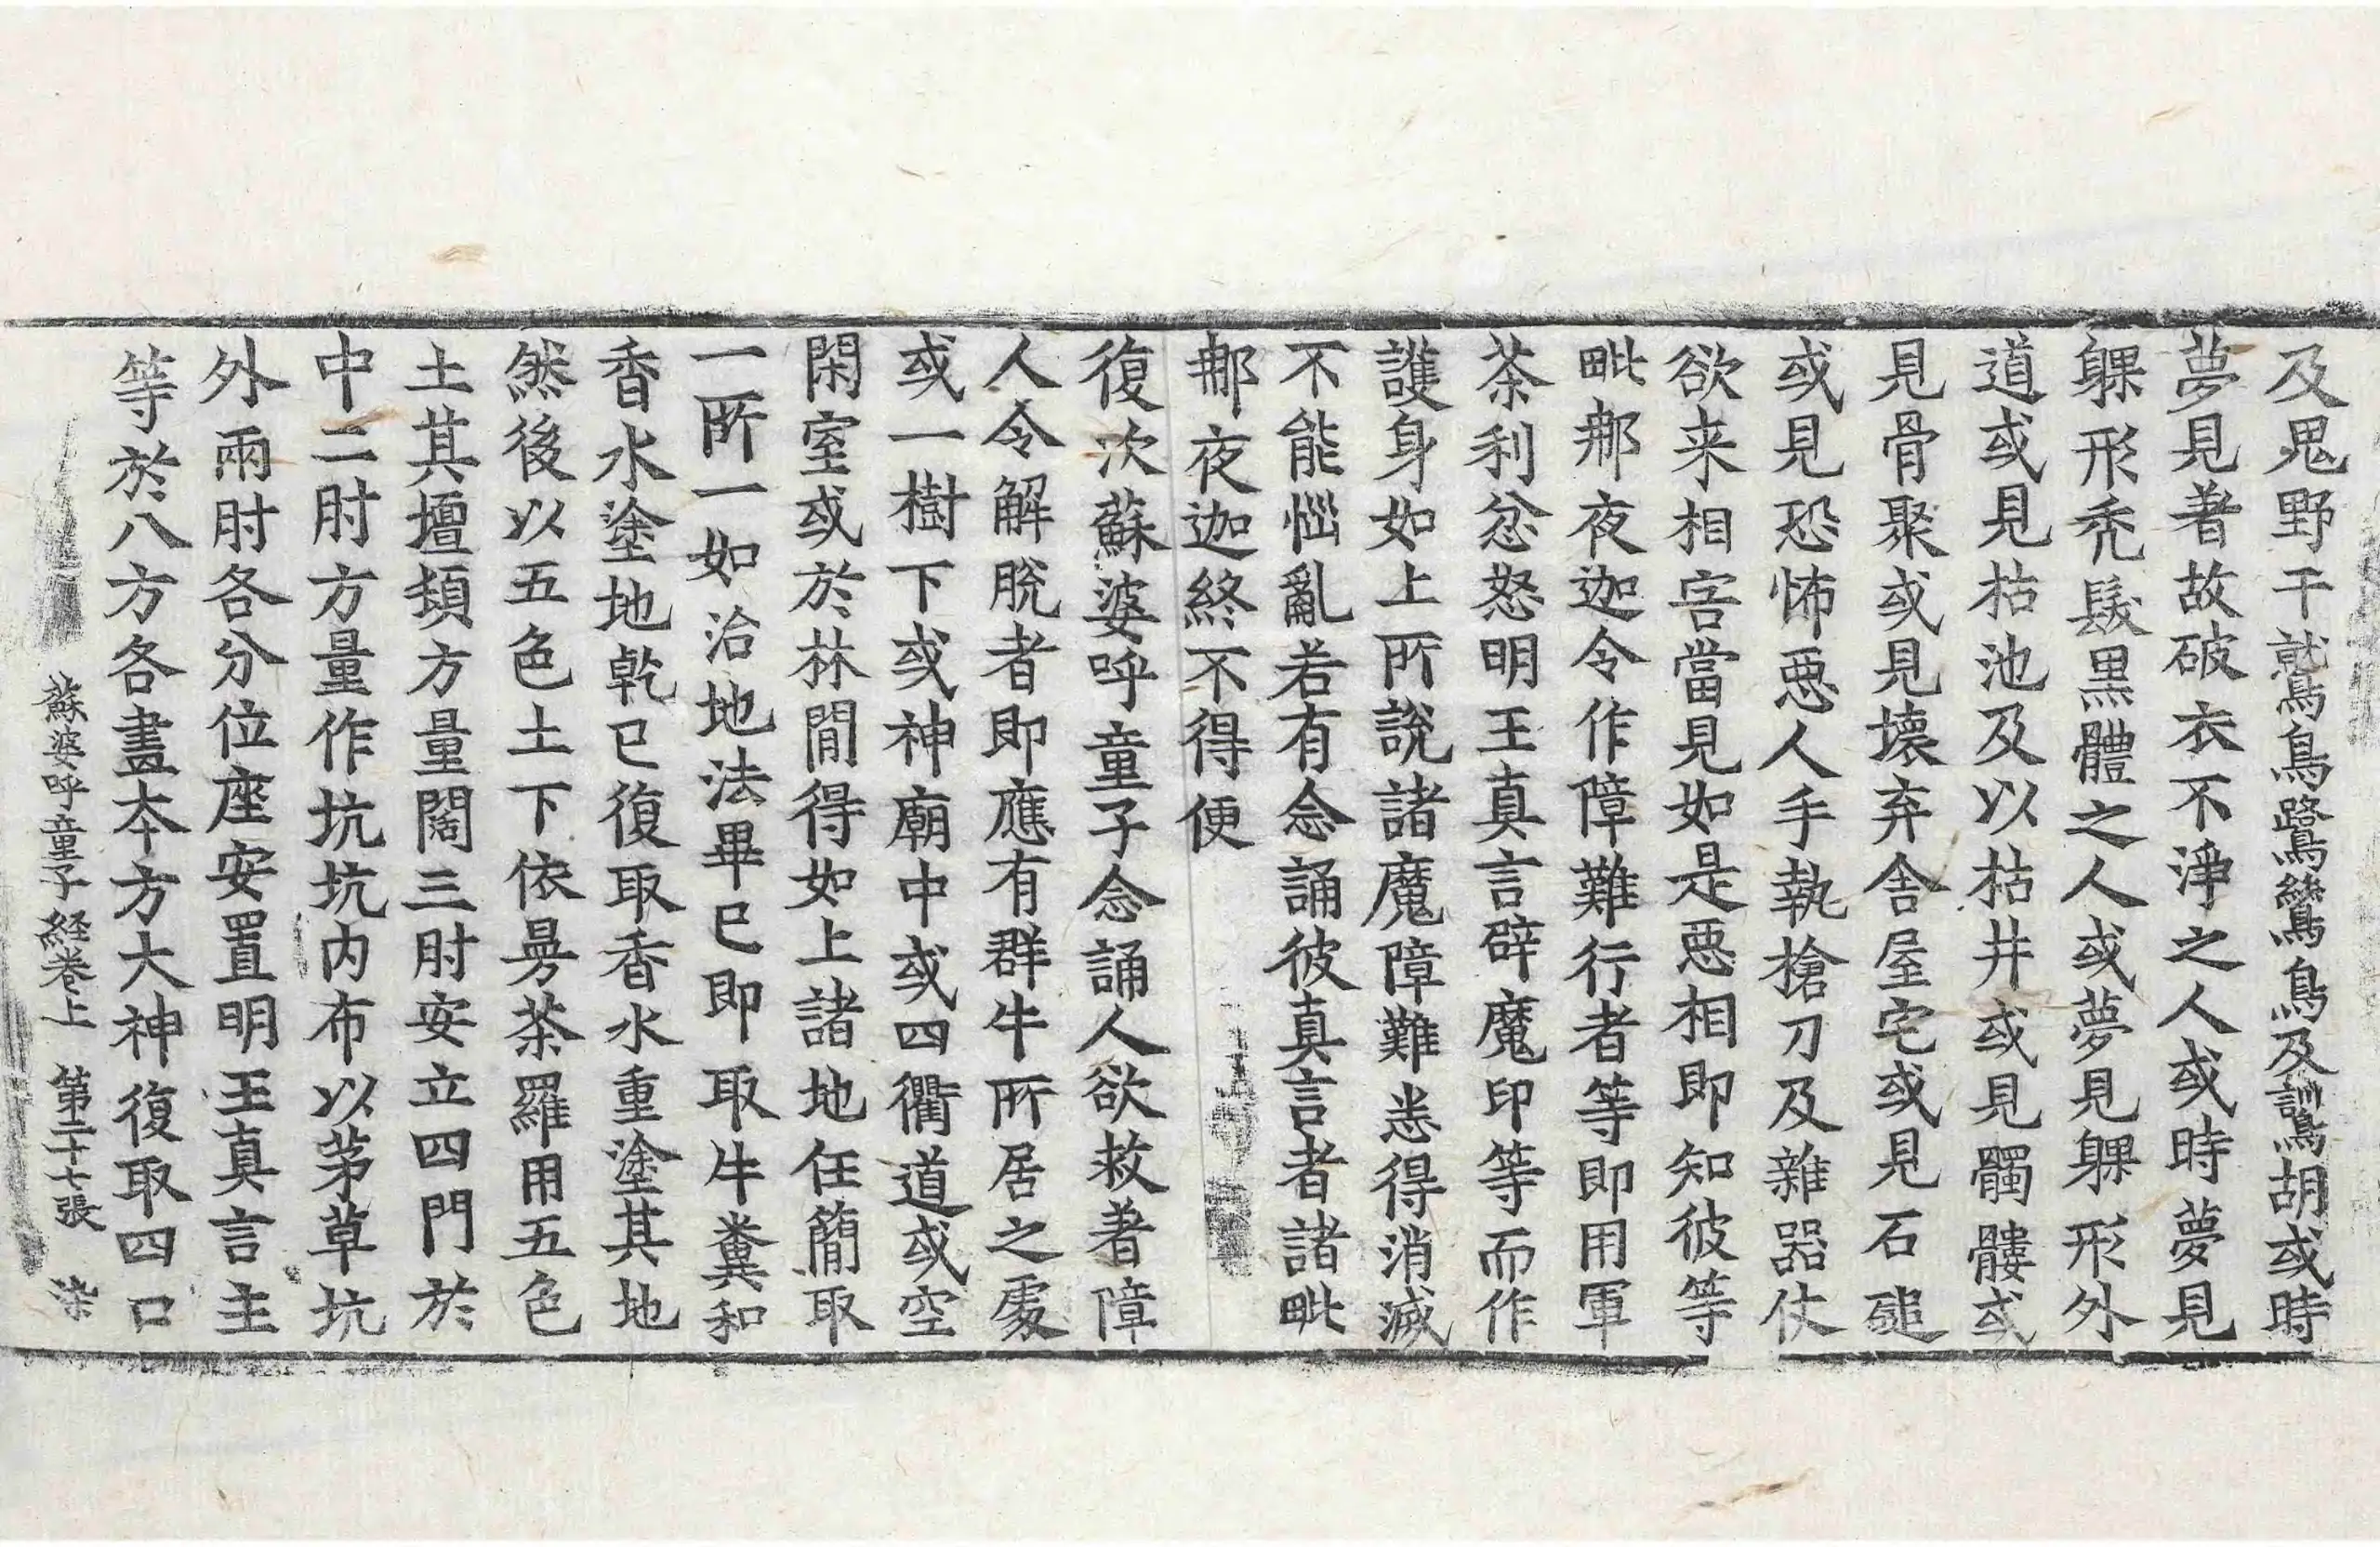 及鬼野干鷲鳥鷺鷥鳥及訓鳥胡或時
夢見著故破衣不淨之人或時夢見
躶形禿髮黑體之人或夢見躶形外
道或見枯池及以枯井或見髑髏或
見骨聚或見壞弃舍屋宅或見石磓
或見恐怖惡人手執槍刀及雜器仗
欲来相害當見如是惡相即知彼等
毗那夜迦令作障難行者等即用軍
茶利忿怒明王真言辟魔印等而作
護身如上所說諸魔障難悉得消滅
不能惱亂若有念誦彼真言者諸毗
那夜迦終不得便
復次蘇婆呼童子念誦人欲救著障
人令解脫者即應有群牛所居之處
或一樹下或神廟中或四衢道或空
閑室或於林間得如上諸地任簡取
一所一如治地法畢已即取牛糞和
香水塗地乾已復取香水重塗其地
然後以五色土下依曼茶羅用五色
土其壇頬方量闊三肘安立四門於
中二肘方量作坑坑内布以茅草坑
外兩肘各分位座安置明王真言主
等於八方各畫本方大神復取四口
蘇婆呼童子経卷上 第二十七張 染